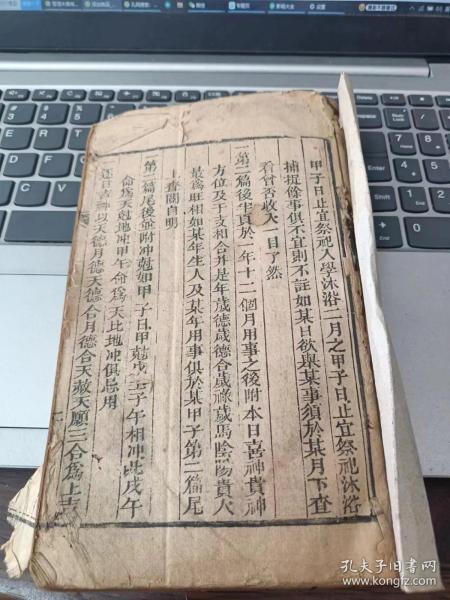 甲子日止宜祭祀入學沐浴二月之甲子日止宜祭祀沐浴
捕捉餘事俱不宜則不註如某日欲舉某事須於某月下查
看曾否收入一目了然
一第二篇後半頁於一年十二個月用事之後附本日喜神貴神
方位及干支相合并是年歲德歲德合歲祿歲馬陰陽貴人
最爲旺相如某年生人及某年用事俱於某甲子第二篇尾
上查閱自明
第二篇尾後並附冲尅如甲子日甲尅戊子午相冲此戊午
命爲天尅地冲甲午命爲天比地冲俱忌用
逐日吉神以天德月德天德合月德合天赦天願三合爲上吉
孔夫子旧书网
www.kongfz.com